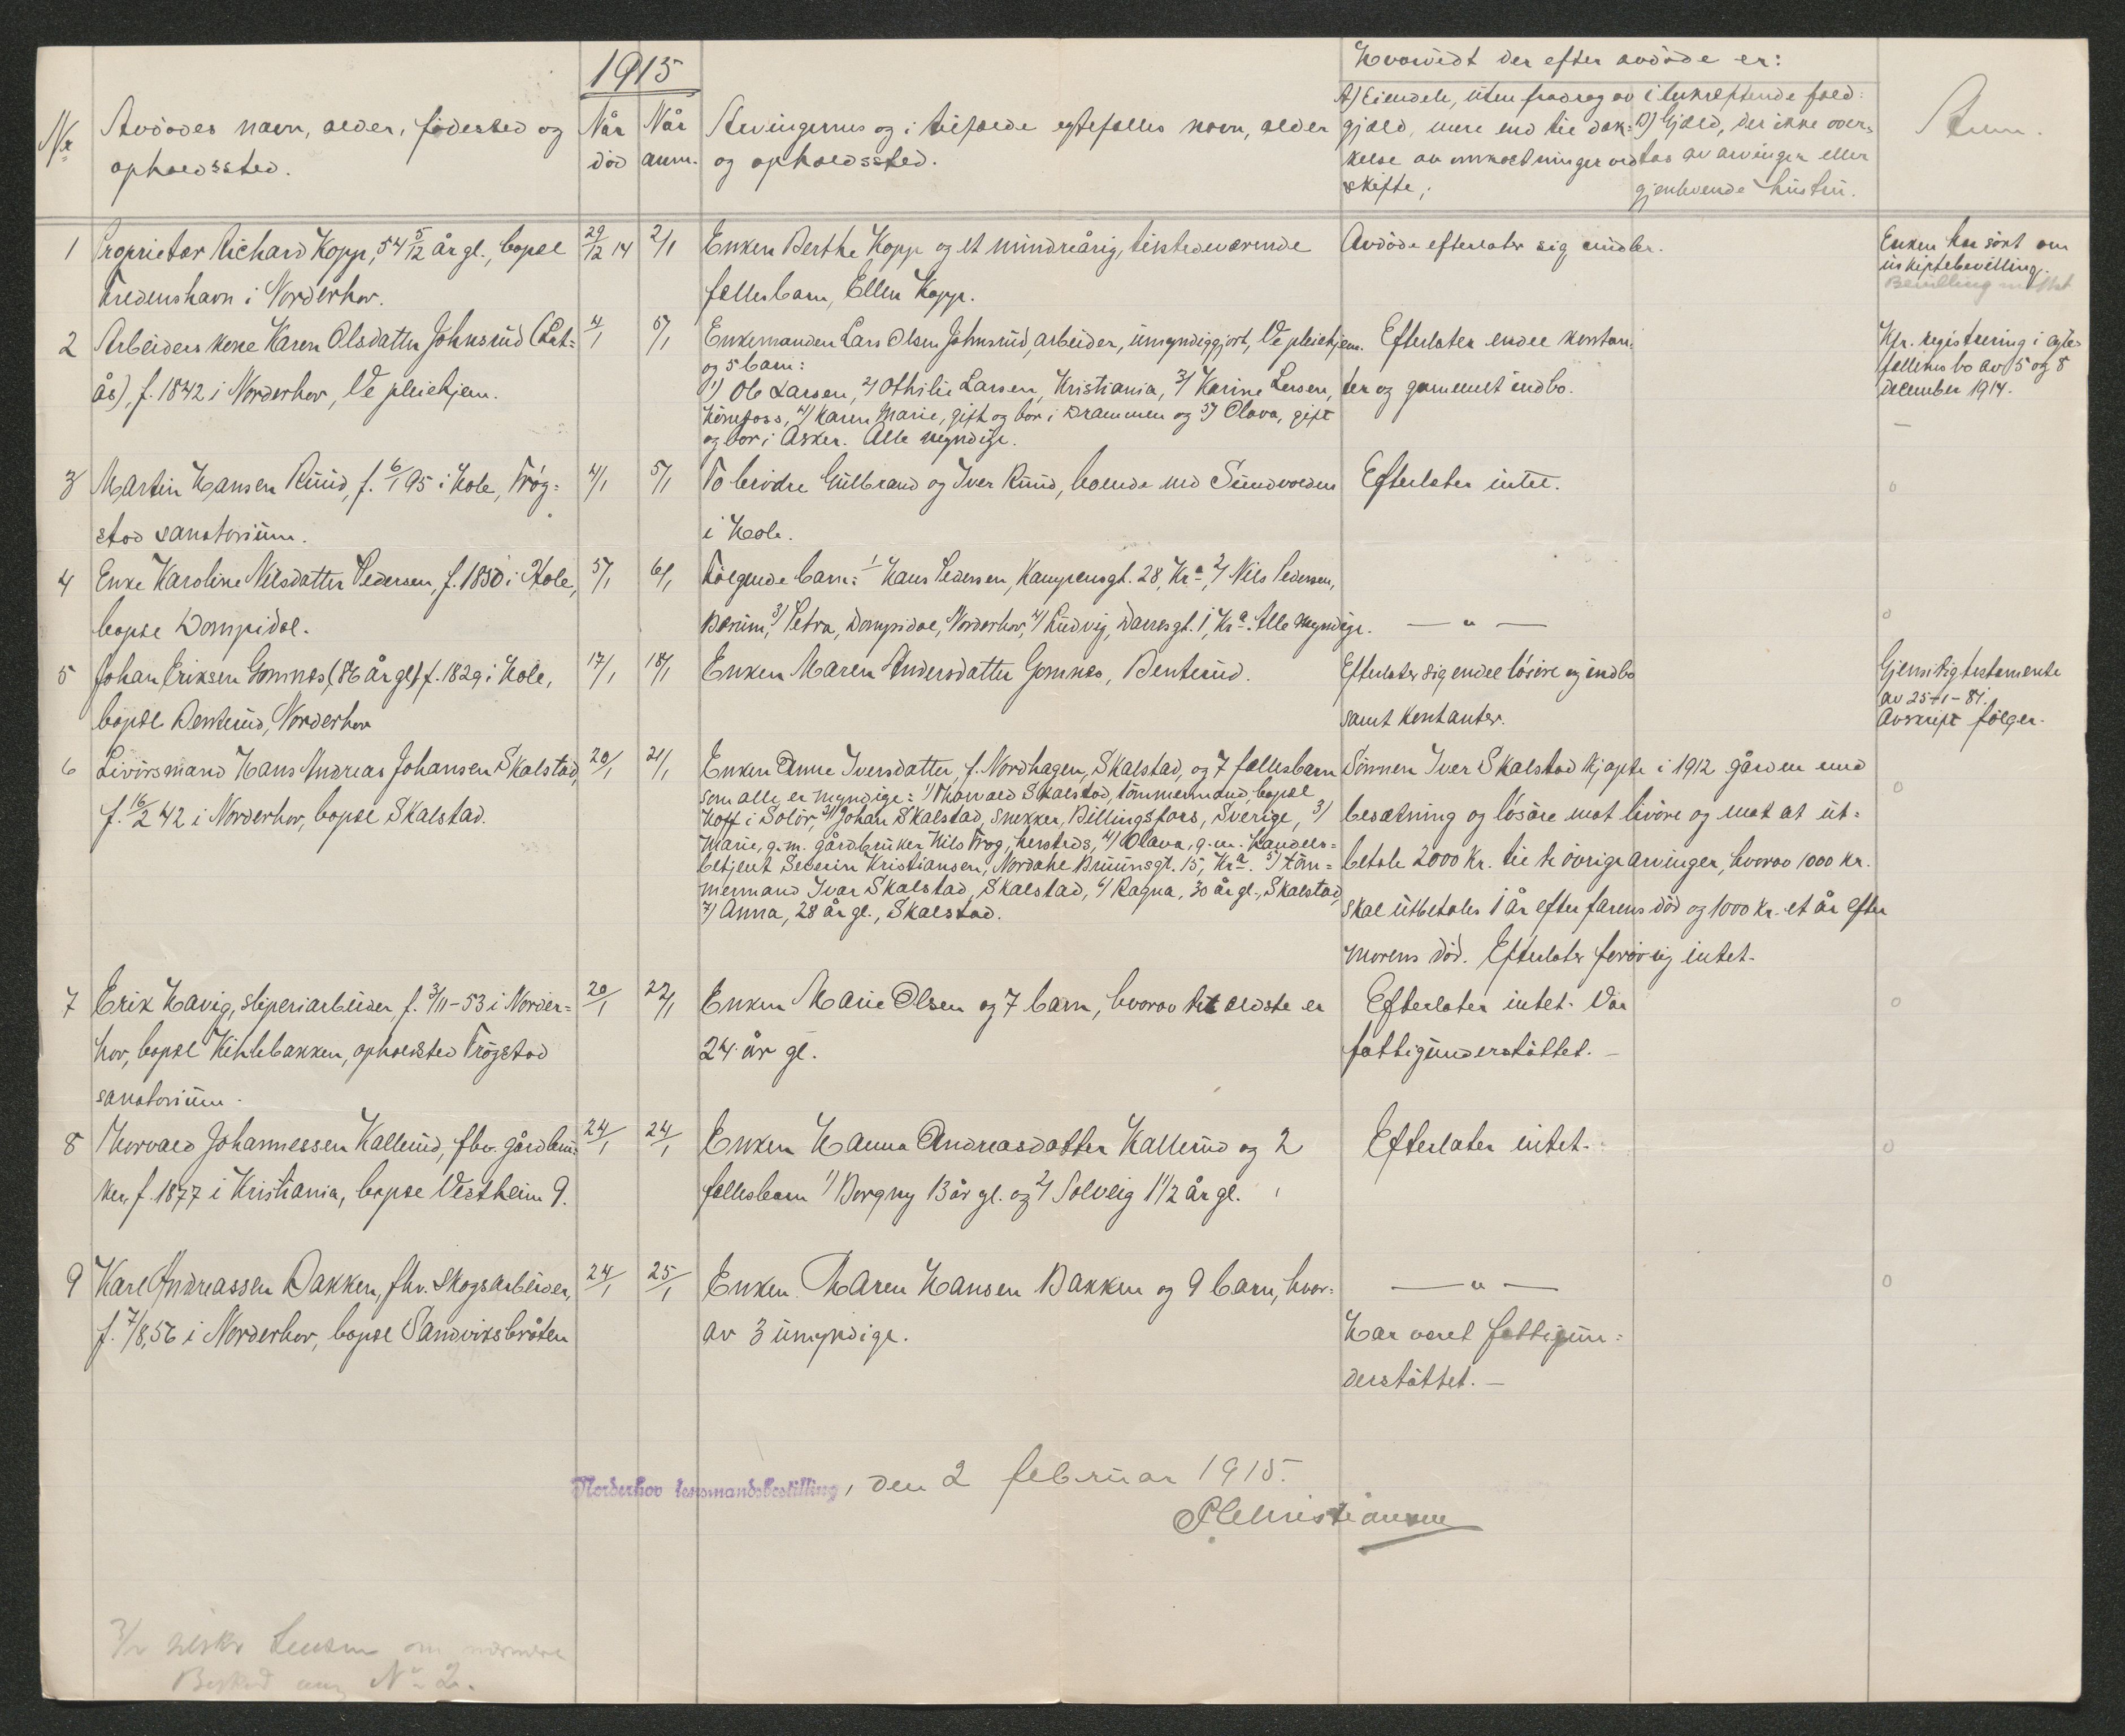 1915
Hvorvidt der efter avdöde er:
Nr
Avdödes navn, alder, födested og
opholdssted.
Når
död
Når
anm.
Arvingernes og i tilfælde egtefælles navn, alder
og opholdssted.
A) Eiendele, uten fradrag av
gjæld, mere end til dæk-
kelse av omkostninger ved
skifte;
i bekræftende fald:
B) Gjæld, der ikke over-
tas av arvinger eller
gjenlevende hustru.
Anm.
1 Proprietær Richard Kopp, 54 5/12 år gl., bopæl
Fredenshavn i Norderhov.
29/12 14
2/1
Enken Berthe Kopp og et mindreårig, tilstedeværende
fellesbarn, Ellen Kopp.
Avdöde efterlater sig midler.
Enken har sökt om
uskiftebevilling.
Bevilling
2 Arbeiders kone Karen Olsdatter Johnsrud
ås), f. 1842 i Norderhov, Ve pleiehjem.
4/1
5/1
Enkemanden Lars Olsen Johnsrud, arbeider, umyndiggjort, Ve pleiehjem.
og 5 barn:
1) Ole Larsen, 2) Othilie Larsen, Kristiania, 3) Karine Larsen,
Hönefoss, 4) Karen Marie, gift og bor i Drammen og 5) Olava, gift
og bor i Asker. Alle myndige.
Efterlater endel kontan-
ter og gammelt indbo.
Kfr. registrering i egte-
fellenes bo av 5 og 8
december 1914.
—
3 Martin Hansen Ruud, f. 6/1 95 i Hole, Frög-
stad sanatorium.
4/1
5/1
To brödre Gulbrand og Iver Ruud, boende ved Sundvolden
i Hole.
Efterlater intet.
0
4 Enke Karoline Nilsdatter Pedersen, f. 1850 i Hole,
bopæl Dompidal.
5/1
6/1
Fölgende barn: 1) Hans Pedersen, Kampensgt. 28, Kra, 2) Nils Pedersen,
Bærum, 3) Petra, Dompidal, Norderhov, 4) Ludvig, gt. 1, Kra. Alle myndige.
— " —
0
5 Johan Eriksen Gomnes, (86 år gl) f. 1829 i Hole,
bopæl Benterud, Norderhov
17/1
18/1
Enken Maren Andersdatter Gomnes, Benterud.
Efterlater sig endel lösöre og indbo
samt kontanter.
Gjensidig testamente
av 25-1-81.
Avskrift fölger.
6 Livörsmand Hans Andreas Johansen Skalstad,
f. 16/2 42 i Norderhov, bopæl Skalstad.
20/1
21/1
Enken Anne Iversdatter, f. Nordhagen, Skalstad, og 7 fællesbarn
som alle er myndige: 1) Thorvald Skalstad, tömmermand, bopæl
Hoff i Solör, 2) Johan Skalstad, snekker, Billingsfors, Sverige, 3)
Marie, g.m. gårdbruker Nils Frog, 4) Olava, g.m. handels-
betjent Severin Kristiansen, Nordahl Bruunsgt. 15, Kra. 5) töm-
mermand Ivar Skalstad, Skalstad, 6) Ragna, 30 år gl., Skalstad,
7) Anna, 28 år gl., Skalstad.
Sönnen Iver Skalstad kjöpte i 1912 gården med
besætning og lösöre mot livöre og mot at ut-
betale 2000 kr. til de övrige arvinger, hvorav 1000 kr.
skal utbetales 1 år efter farens död og 1000 kr. et år efter
morens död. Efterlater forövrig intet.
0
7 Erik Havig, sliperiarbeider, f. 3/11-53 i Norder-
hov, bopæl Kihlebakken, opholdssted Frögstad
sanatorium.
20/1
22/1
Enken Marie Olsen og 7 barn, hvorav det ældste er
24 år gl.
Efterlater intet. Var
fattigunderstöttet. —
0
8 Thorvald Johannessen Kallerud, fhv. gårdbru-
ker, f. 1877 i Kristiania, bopæl Vestheim 9.
24/1
24/1
Enken Hanna Andreasdatter Kallerud og 2
fællesbarn 1) Borgny 13 år gl. og 2) Solveig 1 1/2 år gl.
Efterlater intet.
0
9 Karl Andreassen Bakken, fhv. skogsarbeider,
f. 7/8, 56 i Norderhov, bopæl Sandviksbråten
24/1
25/1
Enken Maren Hansen Bakken og 9 barn, hvor-
av 3 umyndige.
— " —
Har været fattigun-
derstöttet. —
0
Norderhov lensmandsbestilling, den 2 februar 1915.
Christiansen
3/2 Lensm om nærmere
Besked ang No 2.